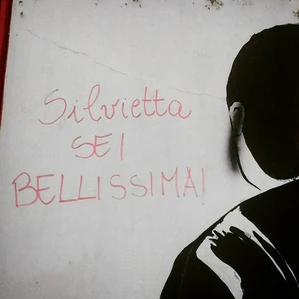 Silvietta
SEI
BELLISSIMA!